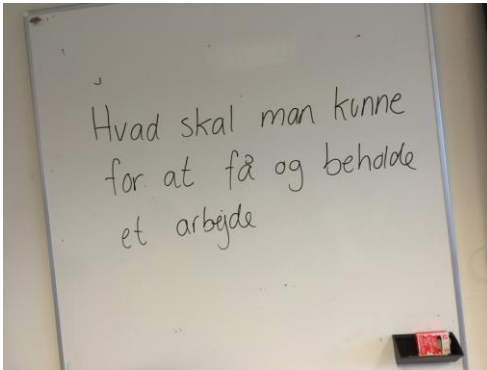 Hvad skal man kunne
for at få og beholde
et arbejde